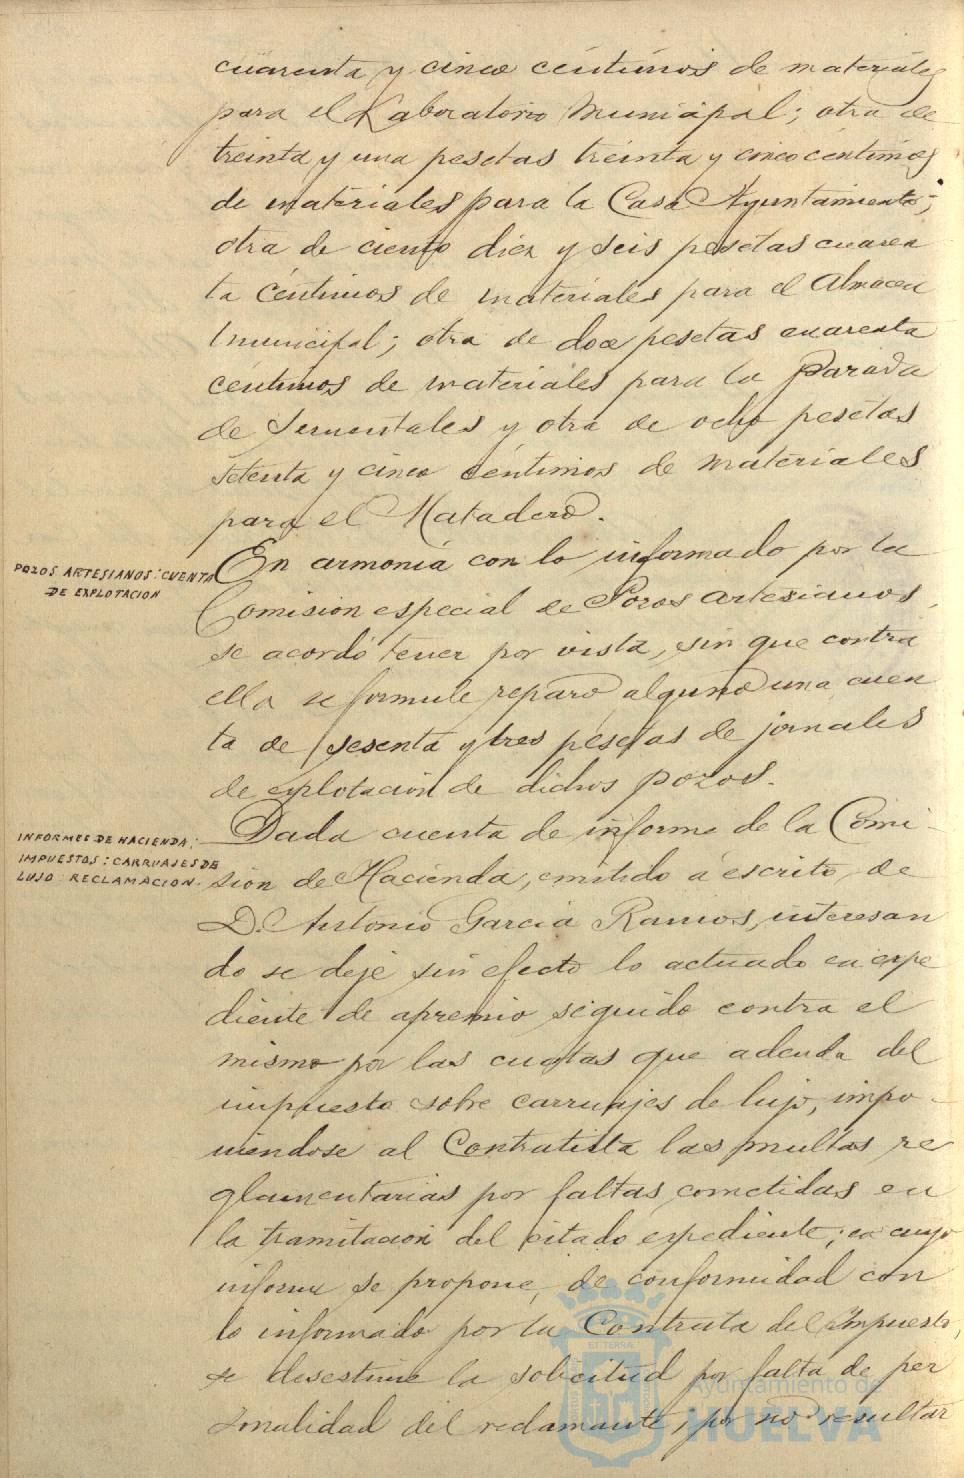 cuarenta y cinco céntimos de materiales
para el Laboratorio Municipal; otra de
treinta y una pesetas treinta y cinco centimos
de materiales para la Casa Ayuntamiento;
otra de ciento diez y seis pesetas cuaren
ta céntimos de materiales para el Almacen
municipal; otra de doce pesetas cuarenta
céntimos de materiales para la Parada
de Sementales y otra de ocho pesetas
setenta y cinco céntimos de materiales
para el Matadero.
POZOS ARTESIANOS: CUENTA
DE EXPLOTACION
En armonía con lo informado por la
Comisión especial de Pozos artesianos,
se acordó tener por vista, sin que contra
ella se formule reparo alguno una cuen
ta de sesenta y tres pesetas de jornales
de explotación de dichos pozos.
INFORMES DE HACIENDA:
IMPUESTOS: CARRUAJES DE
LUJO: RECLAMACION.
Dada cuenta de informe de la Comi-
sion de Hacienda, emitido á escrito de
D. Antonio Garcia Ramos, interesan
do se deje sin efecto lo actuado en expe
diente de apremio seguido contra el
mismo por las cuotas que adeuda del
impuesto sobre carruajes de lujo, impo-
niendose al Contratista las multas re
glamentarias por faltas cometidas en
la tramitación del citado expediente; en cuyo
informe se propone, de conformidad con
lo informado por la Contrata del Impuesto,
se desestime la solicitud por falta de per
sonalidad del reclamante, por no resultar
Ayuntamiento de
HUELVA